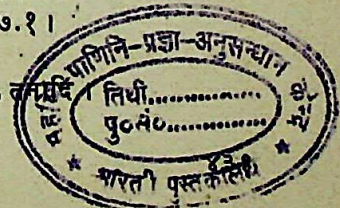 ७.१।
पाणिनि-प्रज्ञा-अनुसन्धान
तिथी..............
पु०सं०..............
भारती पुस्तकालय